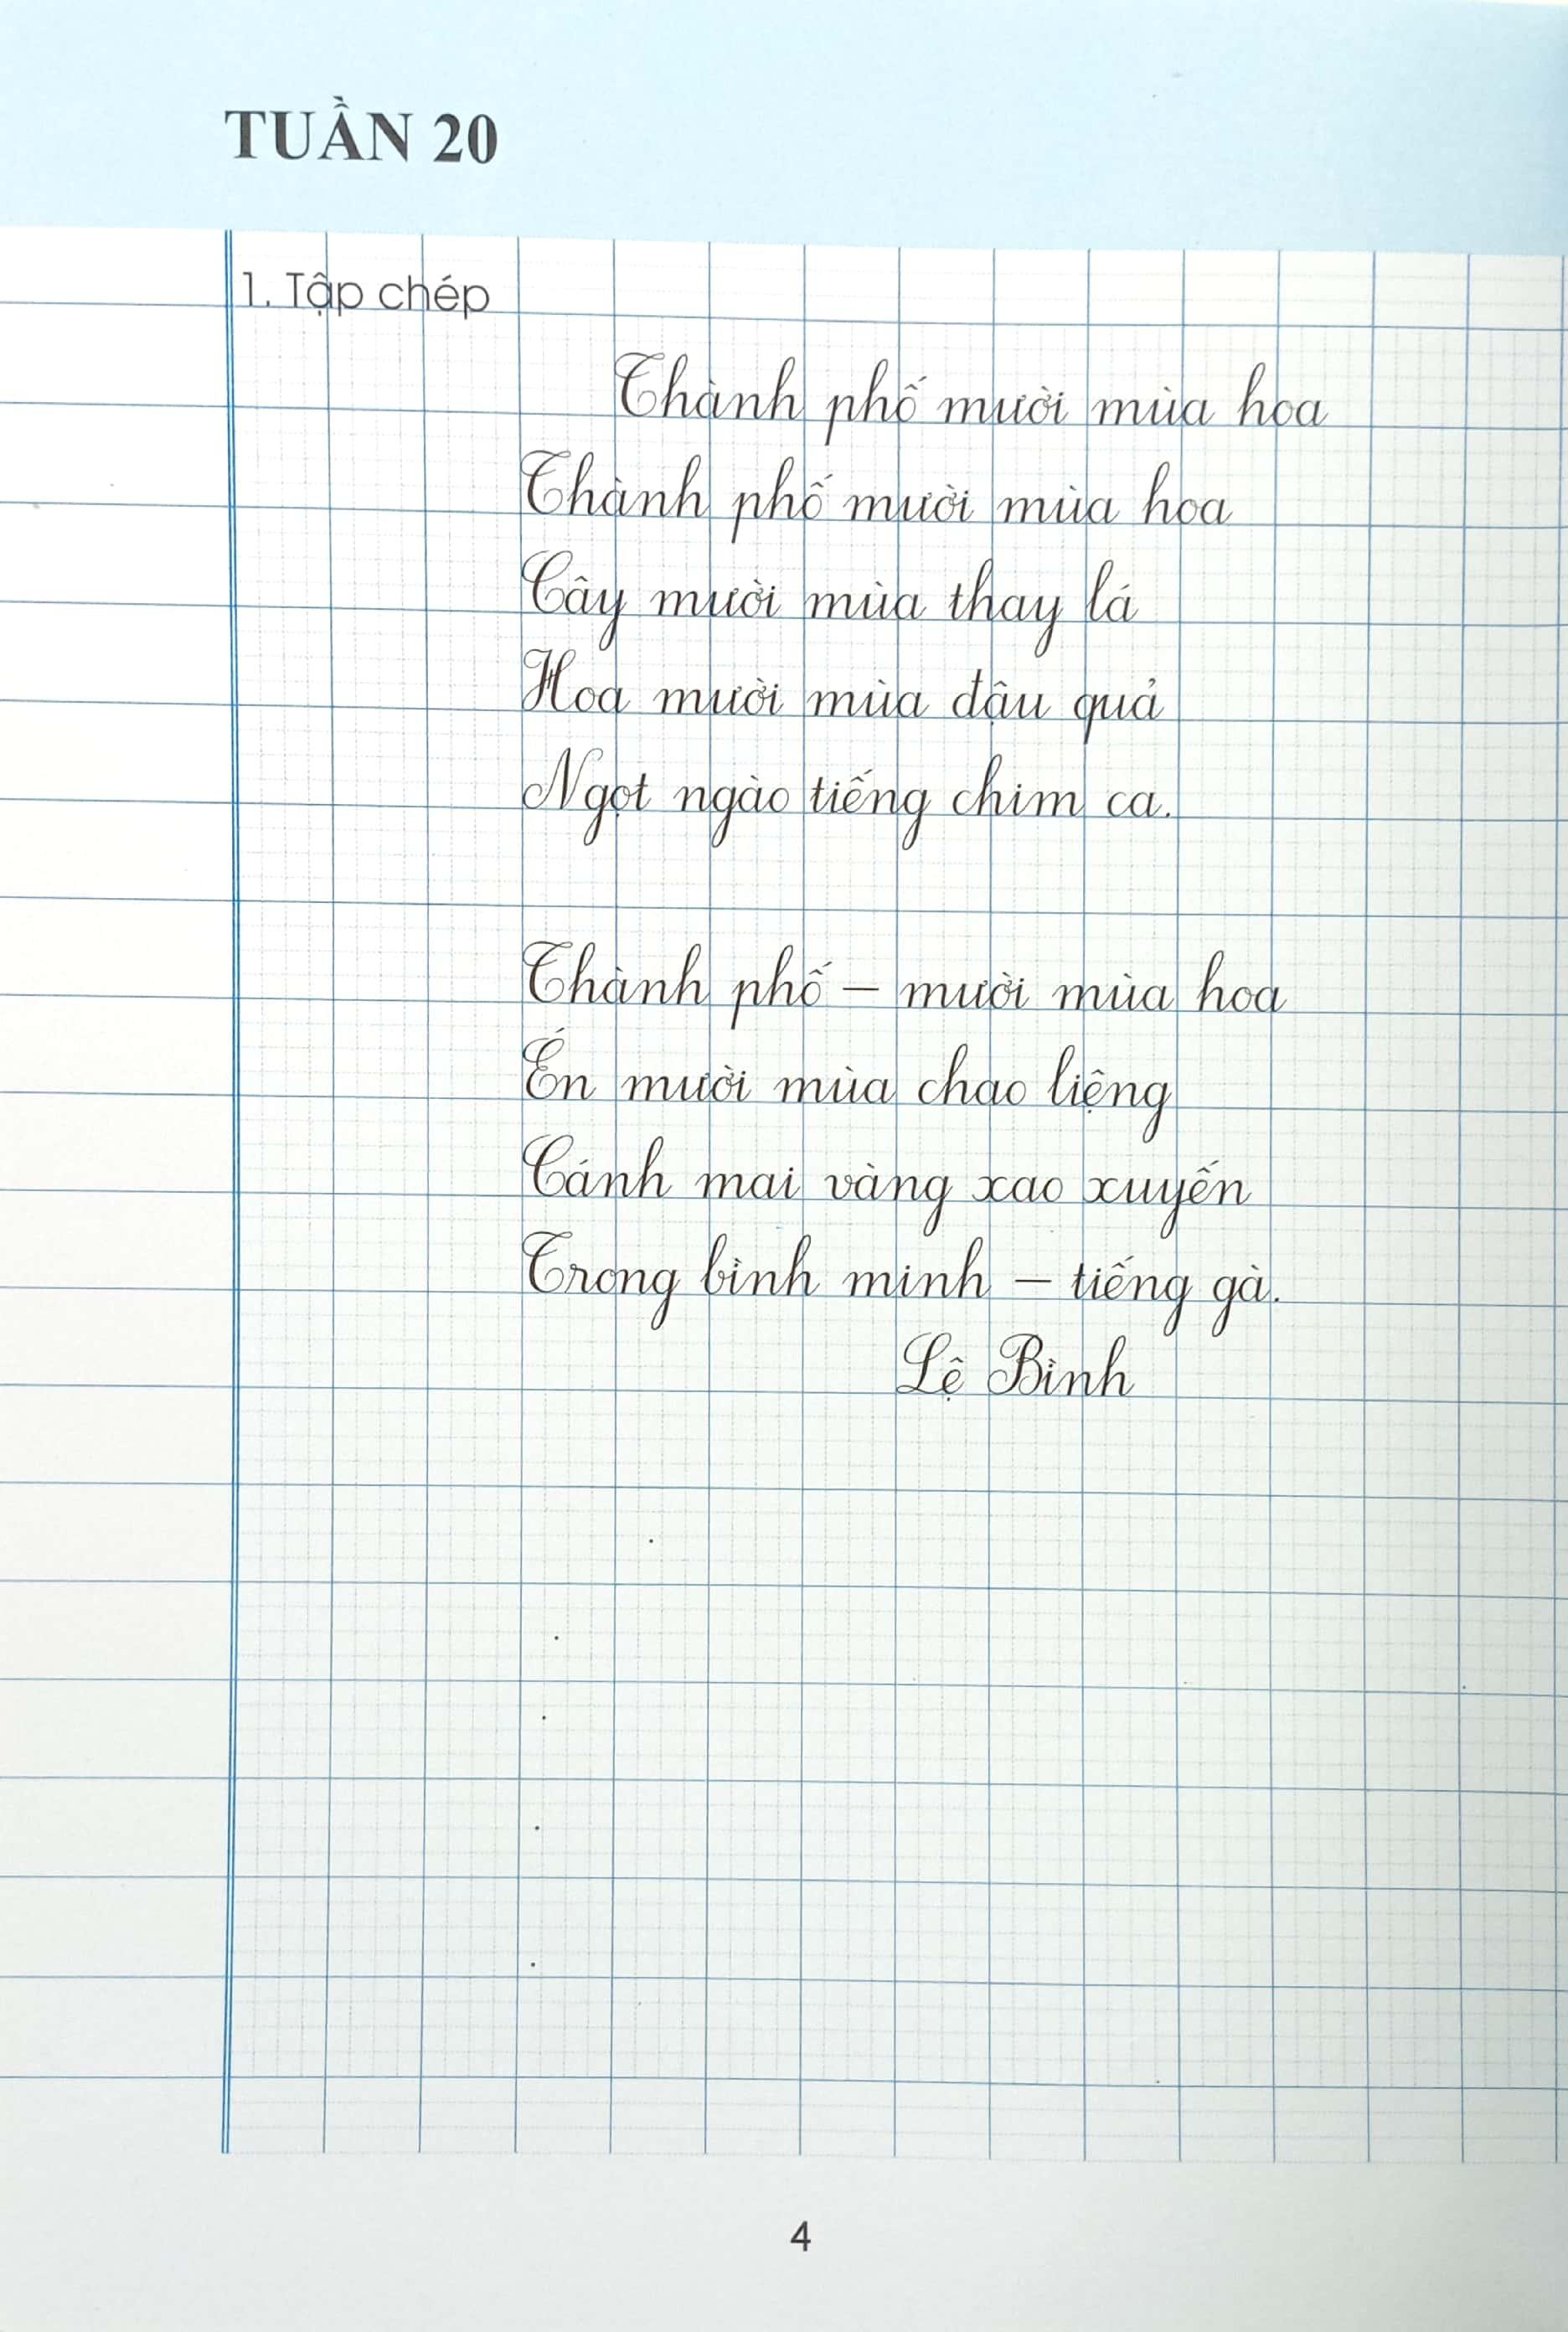 TUẦN 20
1. Tập chép
Thành phố mười mùa hoa
Thành phố mười mùa hoa
Cây mười mùa thay lá
Hoa mười mùa đậu quả
Ngọt ngào tiếng chim ca.
Thành phố – mười mùa hoa
Én mười mùa chao liệng
Cánh mai vàng xao xuyến
Trong bình minh – tiếng gà.
Lệ Bình
4